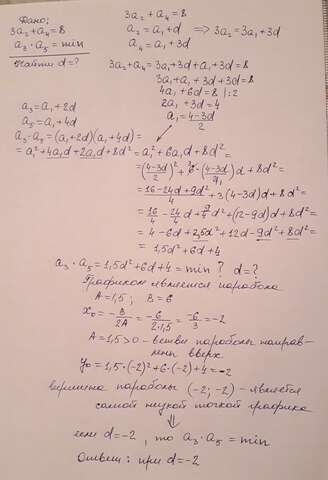 Дано:
3a₂+a₄=8
a₃·a₅=min
Найти d=?
3a₂+a₄=8
a₂=a₁+d ⇒ 3a₂=3a₁+3d
a₄=a₁+3d
3a₂+a₄=3a₁+3d+a₁+3d=8
3a₁+a₁+3d+3d=8
4a₁+6d=8 |:2
2a₁+3d=4
a₁=(4-3d)/2
a₃=a₁+2d
a₅=a₁+4d
a₃·a₅=(a₁+2d)(a₁+4d)=
=a₁²+4a₁d+2a₁d+8d²=a₁²+6a₁d+8d²=
=((4-3d)/2)²+6·((4-3d)/2)d+8d²=
=(16-24d+9d²)/4+3(4-3d)d+8d²=
=16/4-24/4d+9/4d²+(12-9d)d+8d²=
=4-6d+2,5d²+12d-9d²+8d²=
=1,5d²+6d+4
a₃·a₅=1,5d²+6d+4=min? d=?
Графиком является парабола
A=1,5; B=6
x₀=-B/2A=-6/2·1,5=-6/3=-2
A=1,5>0 - ветви параболы направ-
лены вверх
y₀=1,5·(-2)²+6·(-2)+4=-2
вершина параболы (-2;-2) - является
самой низкой точкой графика
⇓
если d=-2, то a₃·a₅=min
Ответ: при d=-2